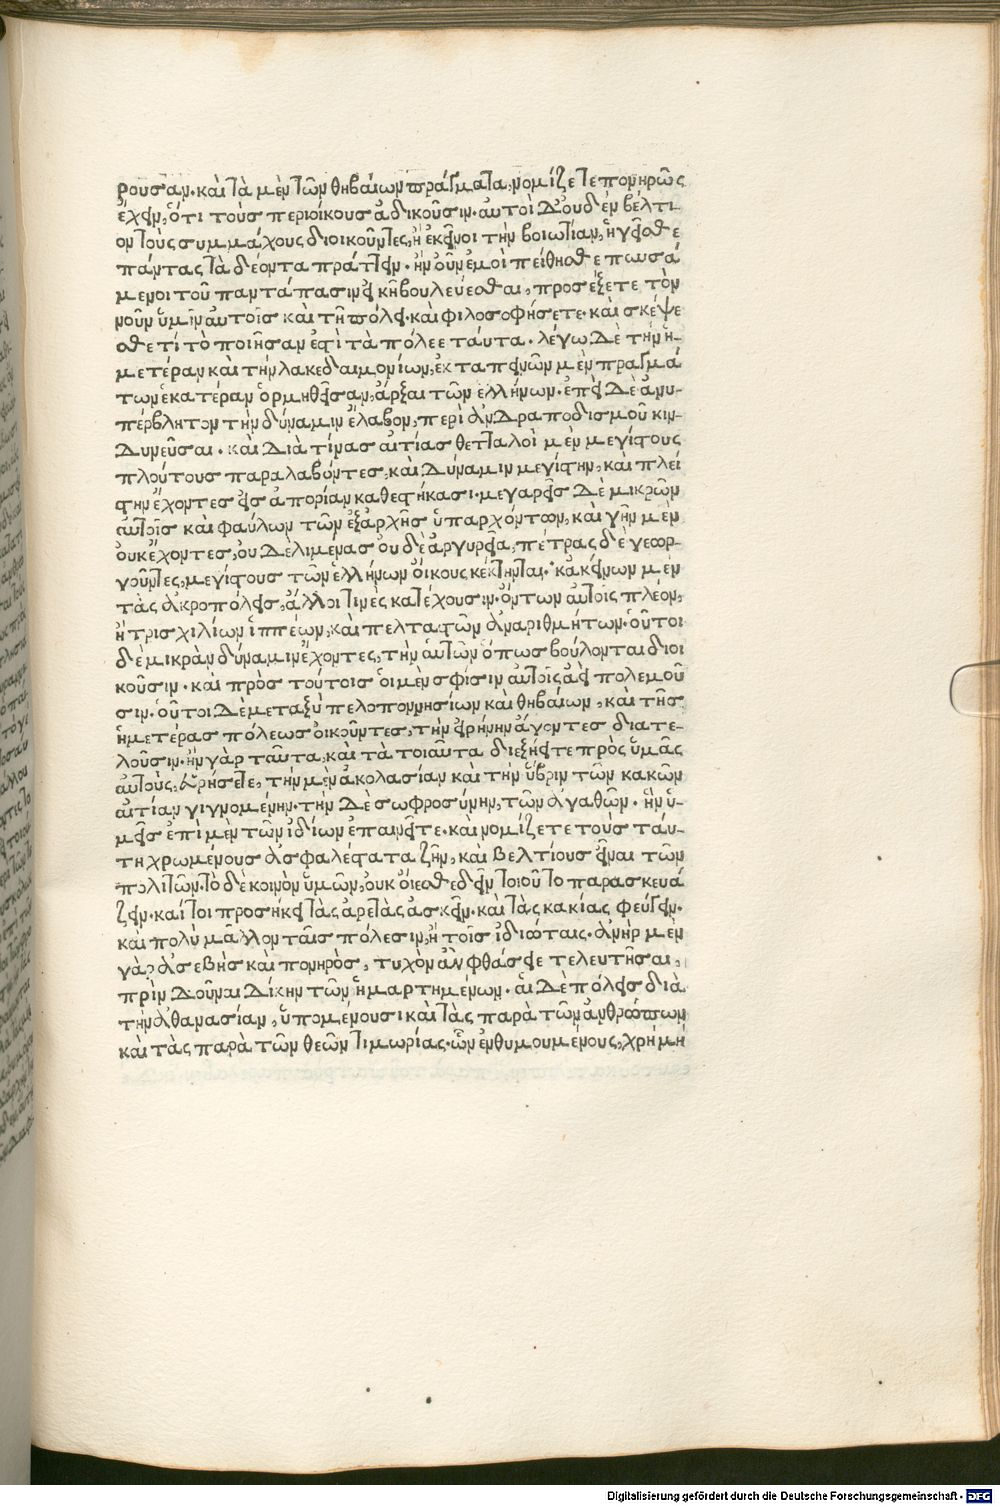 ρουσαν. καὶ τὰ μὲν τῶν θηβαίων πράγματα, νομίζετε πονηρῶς
ἔχειν, ὅτι τοὺς περιοίκους ἀδικοῦσιν. αὐτοὶ δ' οὐδὲν βέλτι-
ον τοὺς συμμάχους διοικοῦντες, ἢ ἐκεῖνοι τὴν βοιωτίαν, ἡγεῖσθε
πάντας τὰ δέοντα πράττειν. ἢν οὖν ἐμοὶ πείθησθε παυσά
μενοι τοῦ παντάπασιν εἰκῆ βουλεύεσθαι, προσέξετε τὸν
νοῦν ὑμῖν αὐτοῖς καὶ τῇ πόλει. καὶ φιλοσοφήσετε. καὶ σκέψε
σθε τί τὸ ποιῆσαν ἐστὶ τὰ πόλεε ταύτα. λέγω δὲ τὴν ἡ-
μετέραν καὶ τὴν λακεδαιμονίων, ἐκ ταπεινῶν μὲν πραγμά
των ἑκατέραν ὁρμηθεῖσαν, ἄρξαι τῶν ἑλλήνων. ἐπεὶ δὲ ἀνυ-
πέρβλητον τὴν δύναμιν ἔλαβον, περὶ ἀνδραποδισμοῦ κιν-
δυνεῦσαι. καὶ διὰ τίνας αἰτίας θετταλοὶ μὲν μεγίστους
πλούτους παραλαβόντες, καὶ δύναμιν μεγίστην, καὶ πλεί
στην ἔχοντες εἰς ἀπορίαν καθεστήκασι. μεγαρεῖς δὲ μικρῶν
αὐτοῖς καὶ φαύλων τῶν ἐξἀρχῆς ὑπαρχόντων, καὶ γῆν μὲν
οὐκ ἔχοντες, οὐ δὲ λιμένας οὐδὲ ἀργυρεῖα, πέτρας δὲ γεωρ-
γοῦντες, μεγίστους τῶν ἑλλήνων οἴκους κέκτηνται. κἀκείνων μὲν
τὰς ἀκροπόλεις, ἄλλοι τινὲς κατέχουσιν. ὄντων αὐτοῖς πλέον,
ἢ τρισχιλίων ἱππέων, καὶ πελταστῶν ἀναριθμήτων. οὗτοι
δὲ μικρὰν δύναμιν ἔχοντες, τὴν αὑτῶν ὅπως βούλονται διοι
κοῦσιν. καὶ πρὸς τούτοις οἱ μὲν σφίσιν αὐτοῖς ἀεὶ πολεμοῦ
σιν. οὗτοι δὲ μεταξὺ πελοποννησίων καὶ θηβαίων, καὶ τῆς
ἡμετέρας πόλεως οἰκοῦντες, τὴν εἰρήνην ἄγοντες διατε-
λοῦσιν. ἢν γὰρ ταῦτα, καὶ τὰ τοιαῦτα διεξῄητε πρὸς ὑμᾶς
αὐτοὺς, εὑρήσετε, τὴν μὲν ἀκολασίαν καὶ τὴν ὕβριν τῶν κακῶν
αἰτίαν γιγνομένην. τὴν δὲ σωφροσύνην, τῶν ἀγαθῶν. ἣν ὑ-
μεῖς ἐπὶ μὲν τῶν ἰδίων ἐπαινεῖτε. καὶ νομίζετε τοὺς ταύ-
τῃ χρωμένους ἀσφαλέστατα ζῆν, καὶ βελτίους εἶναι τῶν
πολιτῶν. τὸ δὲ κοινὸν ὑμῶν, οὐκ οἴεσθε δεῖν τοιοῦτο παρασκευά
ζειν. καίτοι προσήκει τὰς ἀρετὰς ἀσκεῖν. καὶ τὰς κακίας φεύγειν.
καὶ πολὺ μᾶλλον ταῖς πόλεσιν, ἢ τοῖς ἰδιώταις. ἀνὴρ μὲν
γὰρ ἀσεβὴς καὶ πονηρὸς, τυχὸν ἂν φθάσειε τελευτῆσαι,
πρὶν δοῦναι δίκην τῶν ἡμαρτημένων. αἱ δὲ πόλεις διὰ
τὴν ἀθανασίαν, ὑπομένουσι καὶ τὰς παρὰ τῶν ἀνθρώπων
καὶ τὰς παρὰ τῶν θεῶν τιμωρίας. ὧν ἐνθυμουμένους, χρὴ μὴ
Digitalisierung gefördert durch die Deutsche Forschungsgemeinschaft - DFG